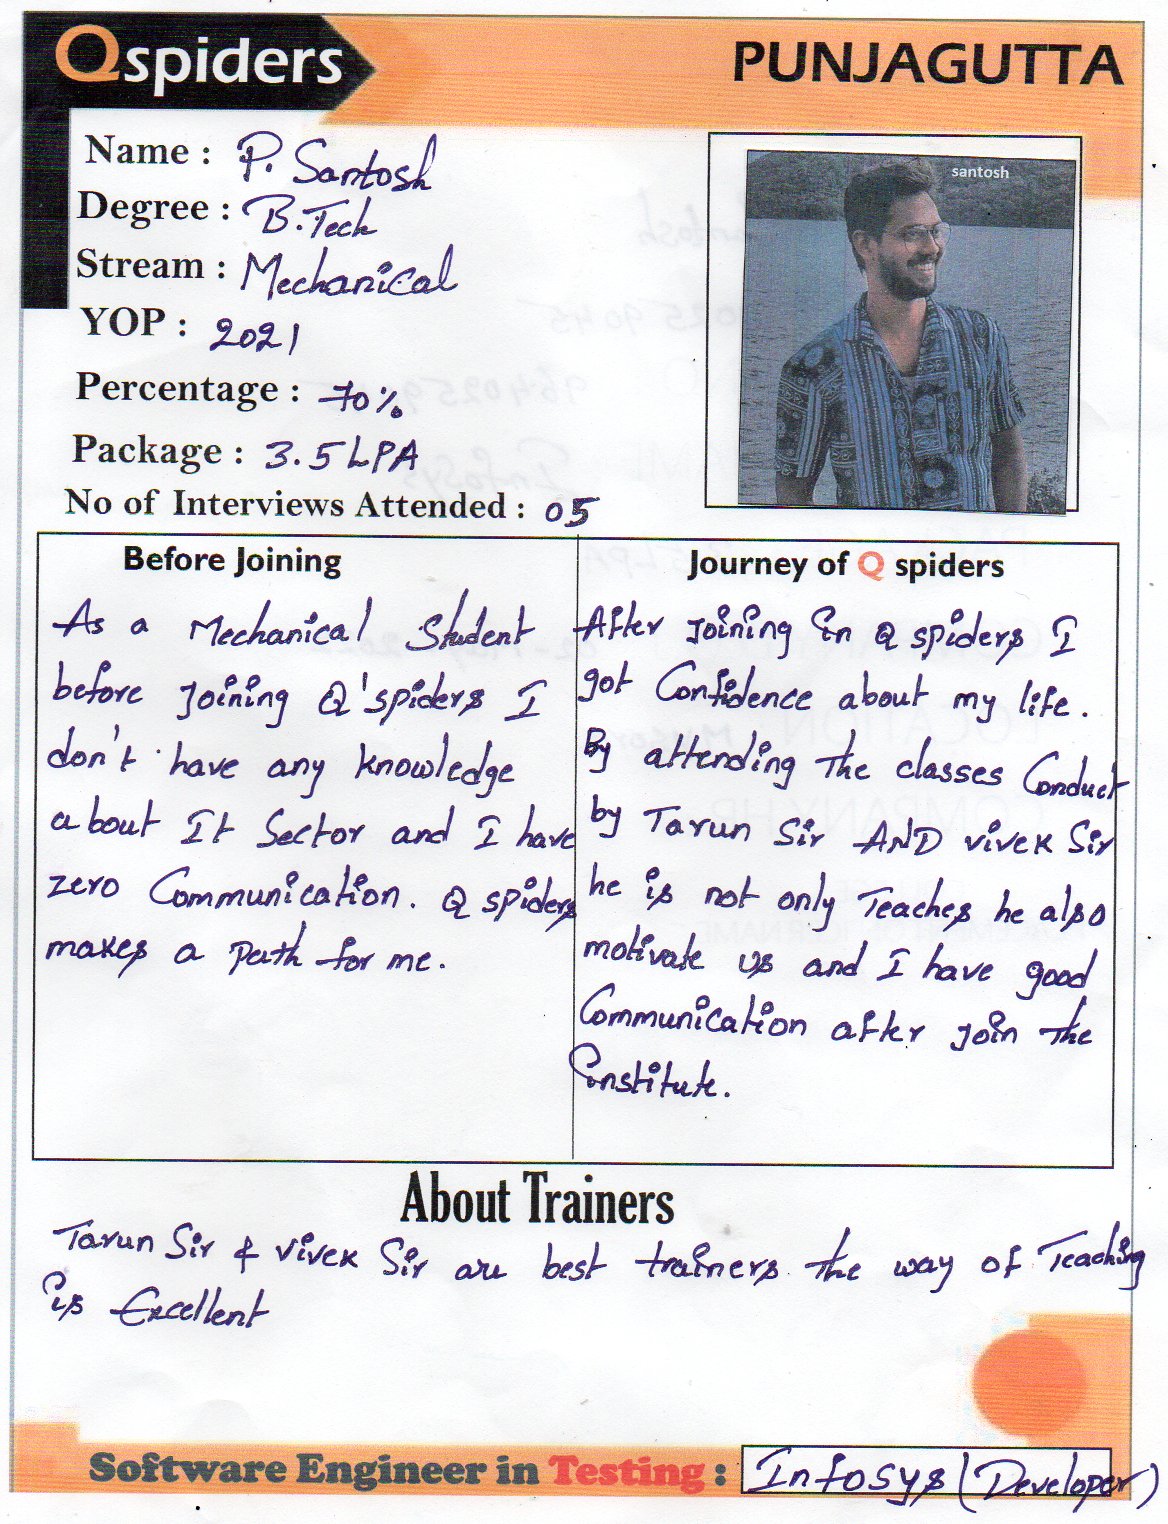 Qspiders
PUNJAGUTTA
Name : P. Santosh
Degree : B.Tech
Stream : Mechanical
YOP : 2021
Percentage : 70%
Package : 3.5 LPA
No of Interviews Attended : 05
santosh
Before Joining
As a Mechanical Student
before joining Q'spiders I
don't have any knowledge
about It Sector and I have
zero Communication. Q spiders
makes a path for me.
Journey of Q spiders
After joining in Q spiders I
got Confidence about my life.
By attending the classes Conduct
by Tarun Sir AND vivek Sir
he is not only Teaches he also
motivate us and I have good
Communication after join the
institute.
About Trainers
Tarun Sir & vivek Sir are best trainers the way of Teaching
is Excellent
Software Engineer in Testing : Infosys (Developer)